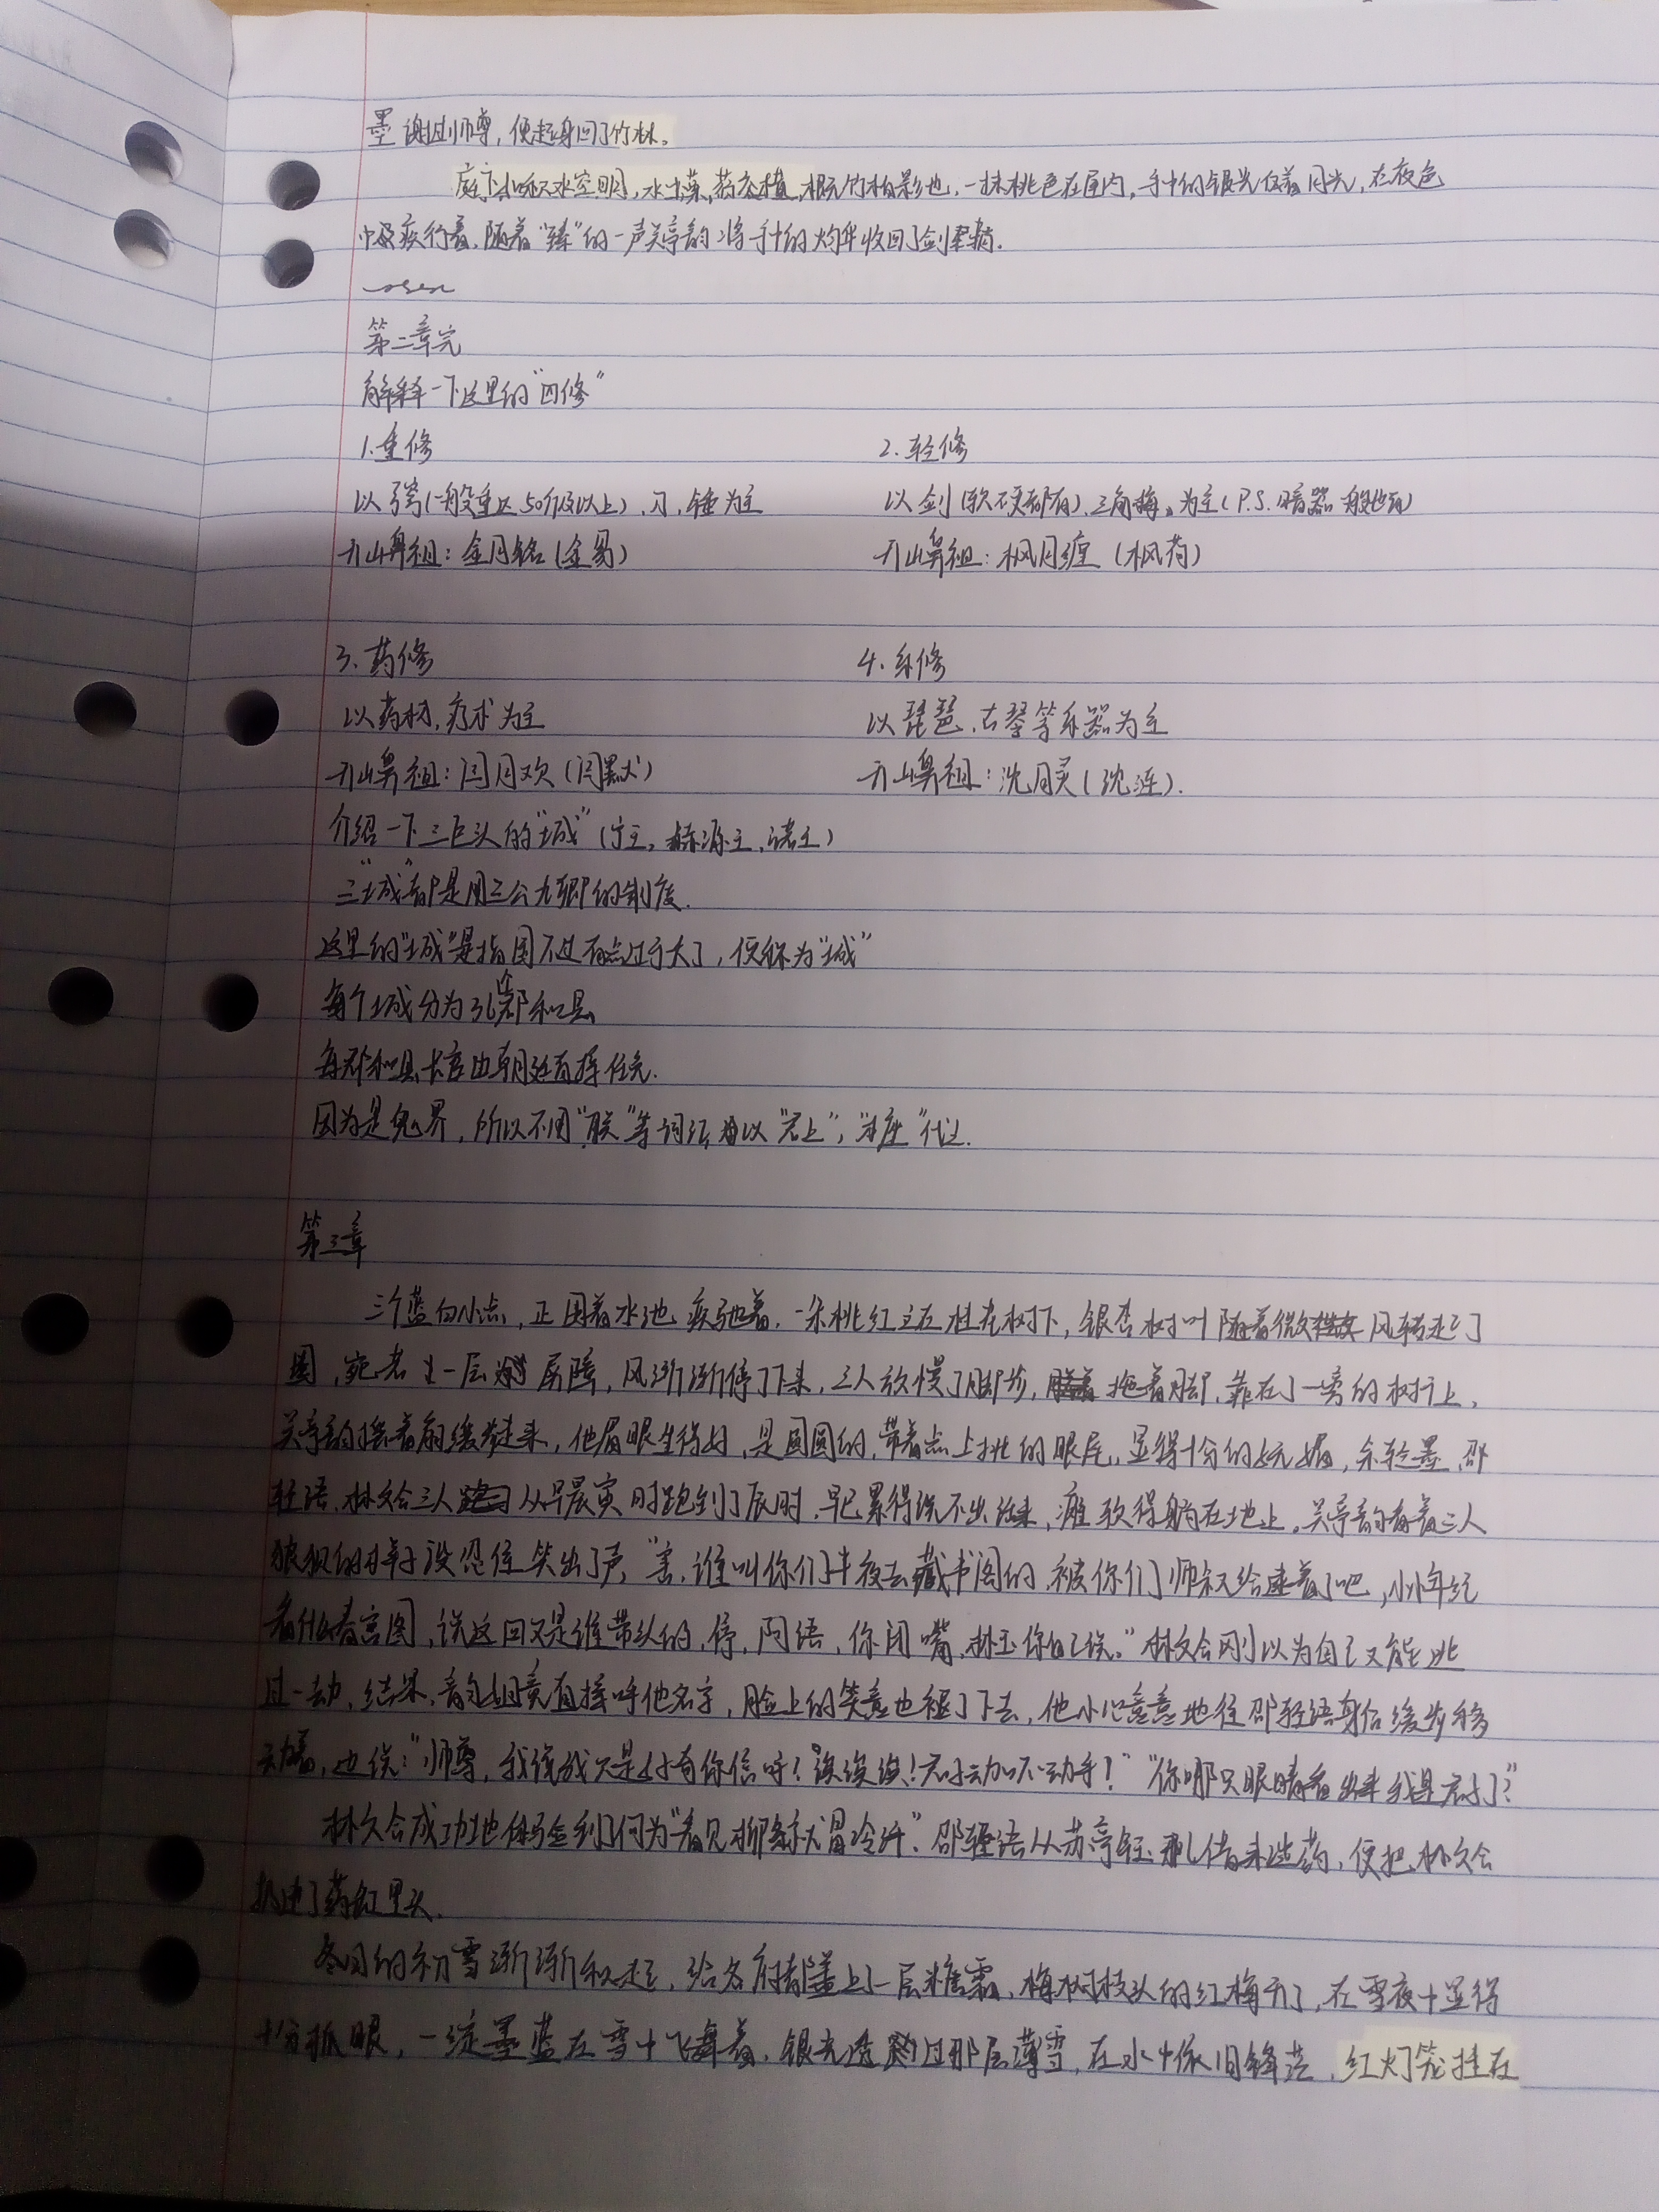 墨谢过师尊,便起身回了竹林。
庭下如积水空明,水中藻、荇交横,概竹柏影也,一抹桃色在庭内,手中的银光仅着月光,在夜色
中极疾行着,随着“臻”的一声关亭韵将手中的灼华收回了剑鞘.
第二章完
解释一下这里的“四修”
1.重修
2.轻修
以弩(一般重达50斤及以上),刀,锤为主
以剑(软硬都有),三角梅,为主(P.S.暗器一般也有)
开山鼻祖:金月铭(金易)
开山鼻祖:枫月缠(枫荷)
3.药修
4.乐修
以药材,疗术为主
以琵琶,古琴等乐器为主
开山鼻祖:闫月欢(闫默)
开山鼻祖:沈月灵(沈涟).
介绍一下三巨头的“城”(宁王,赫源王,诸王)
三“城”都是用三公九卿的制度.
这里的“城”是指国不过有点过于大了,便称为“城”
每个城分为36个郡和县
每郡和县长官由朝廷直接任免.
因为是鬼界,所以不用“朕”等词语,由以“君上”,“本座”代过.
第三章
三个蓝白小点,正围着水池疾驰着,一朵桃红立在桂花树下,银杏树叶随着微风转起了
圈,宛若上一层屏障,风渐渐停了下来,三人放慢了脚步,拖着脚,靠在了一旁的树上,
关亭韵摇着扇缓步走来,他眉眼生得好,是圆圆的,带着点上挑的眼尾,显得十分的妩媚,余轻墨,邵
轻语,林文会三人从早晨寅时跑到了辰时,早已累得说不出话来,瘫软得躺在地上,关亭韵看着三人
狼狈的样子没忍住笑出了声,“害,谁叫你们半夜去藏书阁的,被你们师叔给逮着了吧,小小年纪
看什么春宫图,说这回又是谁带头的,停,阿语,你闭嘴,林玉你自己说。”林文会刚以为自己又能逃
过一劫,结果,韵姐竟直接呼他名字,脸上的笑意也褪了下去,他小心意意地往邵轻语身后缓步移
动着,边说:“师尊,我说我只是好奇你信吗?诶诶诶!君子动口不动手!”“你哪只眼睛看出来我是君子了?”
林文会成功地体验到了何为“看见柳条就冒冷汗”.邵轻语从苏亭轻那儿借来些药,便把林文会
扔进了药缸里头.
冬日的初雪渐渐积起,给各府都盖上了一层糖霜,梅树枝头的红梅开了,在雪夜中显得
十分抓眼,一绽墨蓝在雪中飞舞着,银光透过那层薄雪,在水中依旧锋芒,红灯笼挂在